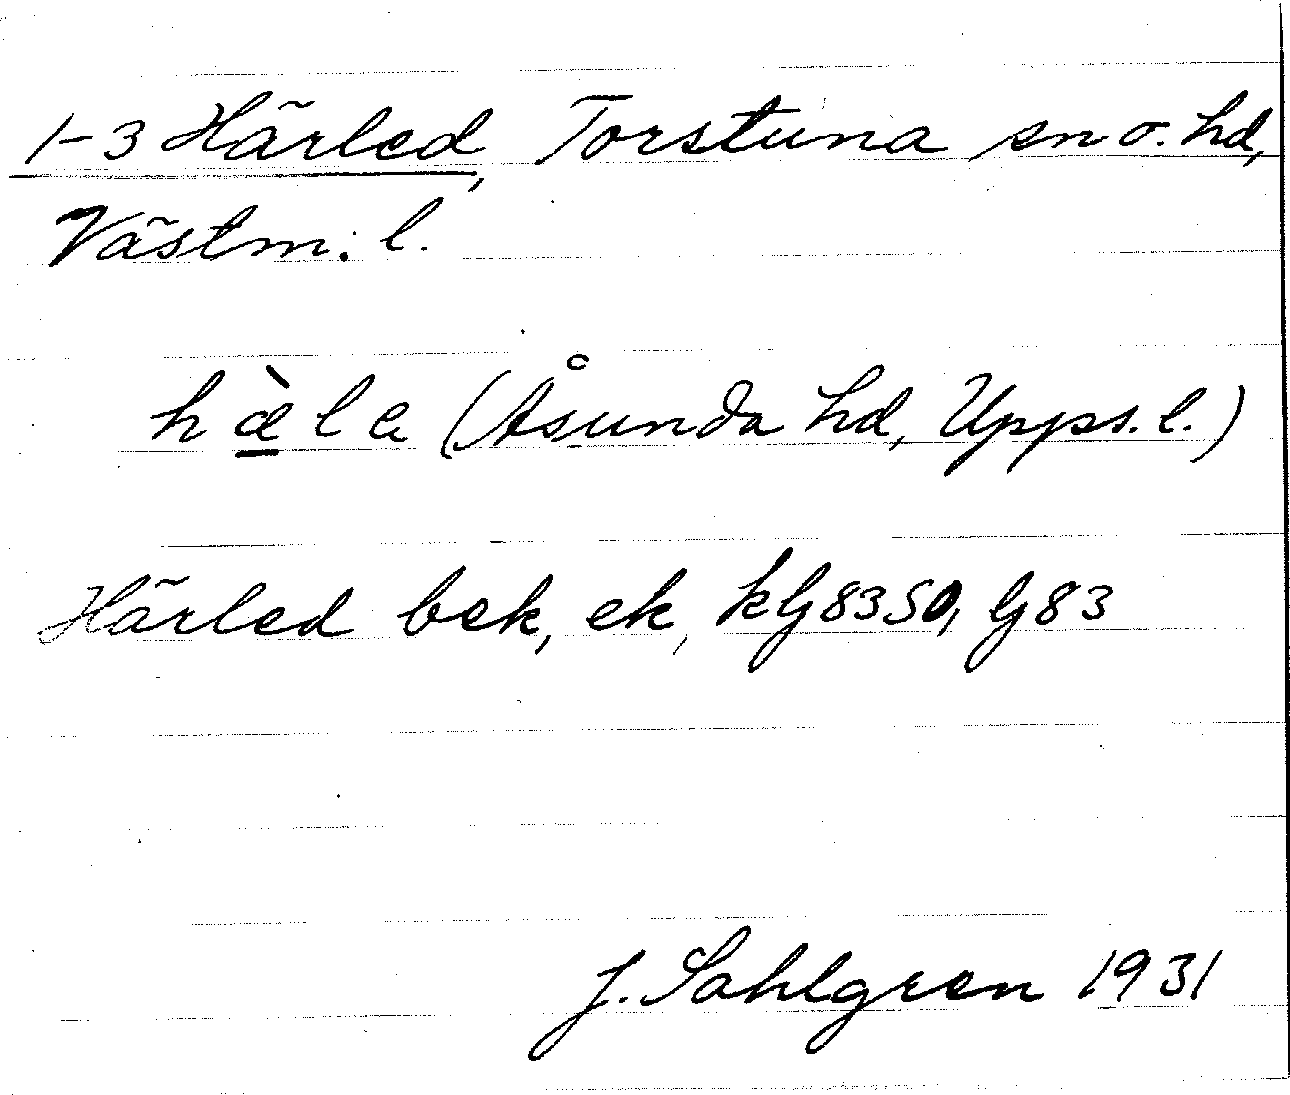 1-3 Härled, Torstuna sn o. hd,
Västm: l.
hæ̀la (Åsunda hd, Upps. l.)
Härled bek, ek, klj8350, lj83
J. Sahlgren 1931